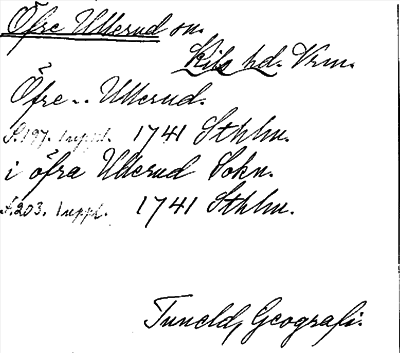 Öfre Ullerud sn.
Kils hd. Vrm.
Öfre.. Ullerud.
S.197. 1 uppl. 1741 Sthlm.
i öfra Ullerud Sokn.
S.203. 1 uppl. 1741 Sthlm.
Tuneld, Geografi.